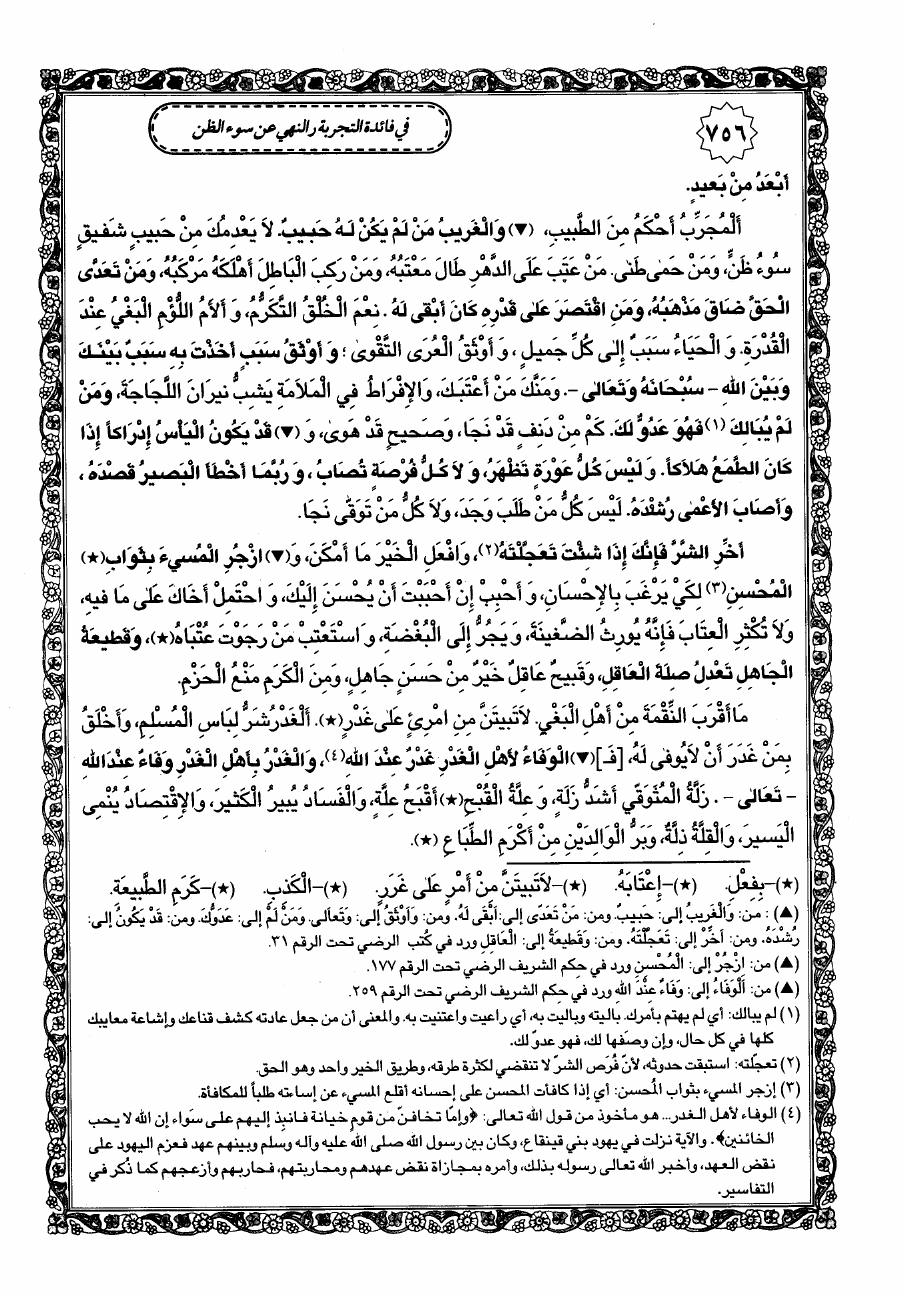 ٧٥٦
في فائدة التجربة والنهي عن سوء الظن
أَبْعَدُ مِنْ بَعيدٍ.
أَلْمُجَرِّبُ أَحْكَمُ مِنَ الطَّبيبِ، (▼) وَالْغَريبُ مَنْ لَمْ يَكُنْ لَهُ حَبيبٌ. لاَ يَعْدِمُكَ مِنْ حَبيبٍ شَفيقٍ
سُوءُ ظَنٍّ، وَمَنْ حَمى طَنى. مَنْ عَتَبَ عَلَى الدَّهْرِ طَالَ مَعْتَبُهُ، وَمَنْ رَكِبَ الْبَاطِلَ أَهْلَكَهُ مَرْكَبُهُ، وَمَنْ تَعَدَّى
الْحَقَّ ضَاقَ مَذْهَبُهُ، وَمَنِ اقْتَصَرَ عَلى قَدْرِهِ كَانَ أَبْقى لَهُ. نِعْمَ الْخُلُقُ التَّكَرُّمُ، وَ أَلأَمُ اللُّؤْمِ الْبَغْيُ عِنْدَ
الْقُدْرَةِ. وَ الْحَيَاءُ سَبَبٌ إِلى كُلِّ جَميلٍ، وَ أَوْثَقُ الْعُرَى التَّقْوى؛ وَ أَوْثَقُ سَبَبٍ أَخَذْتَ بِهِ سَبَبٌ بَيْنَكَ
وَبَيْنَ اللهِ - سُبْحَانَهُ وَتَعَالى -. وَمَنَّكَ مَنْ أَعْتَبَكَ، وَالإِفْرَاطُ فِي الْمَلاَمَةِ يَشِبُّ نيرَانَ اللَّجَاجَةِ، وَمَنْ
لَمْ يُبَالِكَ (١) فَهُوَ عَدُوٌّ لَكَ. كَمْ مِنْ دَنِفٍ قَدْ نَجَا، وَصَحيحٍ قَدْ هَوى، وَ (▼) قَدْ يَكُونُ الْيَأْسُ إِدْرَاكاً إِذَا
كَانَ الطَّمَعُ هَلاَكاً. وَ لَيْسَ كُلُّ عَوْرَةٍ تَظْهَرُ، وَ لاَ كُلُّ فُرْصَةٍ تُصَابُ، وَ رُبَّمَا أَخْطَأَ الْبَصيرُ قَصْدَهُ،
وَ أَصَابَ الأَعْمى رُشْدَهُ. لَيْسَ كُلُّ مَنْ طَلَبَ وَجَدَ، وَلاَ كُلُّ مَنْ تَوَقّى نَجَا.
أَخِّرِ الشَّرَّ فَإِنَّكَ إِذَا شِئْتَ تَعَجَّلْتَهُ (٢)، وَ افْعَلِ الْخَيْرَ مَا أَمْكَنَ، وَ (▼) ازْجُرِ الْمُسيءَ بِثَوَابِ (★)
الْمُحْسِنِ (٣) لِكَيْ يَرْغَبَ بِالإِحْسَانِ، وَ أَحْبِبْ إِنْ أَحْبَبْتَ أَنْ يُحْسَنَ إِلَيْكَ، وَ احْتَمِلْ أَخَاكَ عَلى مَا فيهِ،
وَلاَ تُكْثِرِ الْعِتَابَ فَإِنَّهُ يُورِثُ الضَّغينَةَ، وَ يَجُرُّ إِلَى الْبُغْضَةِ، وَ اسْتَعْتِبْ مَنْ رَجَوْتَ عُتْبَاهُ (★)، وَقَطيعَةُ
الْجَاهِلِ تَعْدِلُ صِلَةَ الْعَاقِلِ، وَقَبيحُ عَاقِلٍ خَيْرٌ مِنْ حَسَنِ جَاهِلٍ، وَمِنَ الْكَرَمِ مَنْعُ الْحَزْمِ.
مَا أَقْرَبَ النِّقْمَةَ مِنْ أَهْلِ الْبَغْيِ. لاَتَبيتَنَّ مِنِ امْرِئٍ عَلى غَدْرٍ (★). أَلْغَدْرُ شَرُّ لِبَاسِ الْمُسْلِمِ، وَأَخْلَقُ
بِمَنْ غَدَرَ أَنْ لاَ يُوفى لَهُ، [فَـ] (▼) الْوَفَاءُ لأَهْلِ الْغَدْرِ غَدْرٌ عِنْدَ اللهِ (٤)، وَالْغَدْرُ بِأَهْلِ الْغَدْرِ وَفَاءٌ عِنْدَ اللهِ
- تَعَالى -. زَلَّةُ الْمُتَوَقّي أَشَدُّ زَلَّةٍ، وَ عِلَّةُ الْقُبْحِ (★) أَقْبَحُ عِلَّةٍ، وَالْفَسَادُ يُبيرُ الْكَثيرَ، وَالإِقْتِصَادُ يُنْمِي
الْيَسيرَ، وَالْقِلَّةُ ذِلَّةٌ، وَبَرُّ الْوَالِدَيْنِ مِنْ أَكْرَمِ الطِّبَاعِ (★).
(★)-بِفِعْلِ. (★)-إِعْتَابَهُ. (★)-لاَتَبيتَنَّ مِنْ أَمْرٍ عَلى غَرَرٍ. (★)-الْكَذِبِ. (★)-كَرَمِ الطَّبيعَةِ.
(▲): من: وَالْغَريبُ إلى: حَبيبٌ. ومن: مَنْ تَعَدّى إلى: أَبْقى لَهُ. ومن: وَأَوْثَقُ إلى: وَتَعَالى. وَمَنْ لَمْ إلى: عَدُوُّكَ. ومن: قَدْ يَكُونُ إلى:
رُشْدَهُ. ومن: أَخِّرِ إلى: تَعَجَّلْتَهُ. ومن: وَقَطيعَةُ إلى: الْعَاقِلِ ورد في كُتب الرضي تحت الرقم ٣١.
(▲) من: ازْجُرْ إلى: الْمُحْسِنِ ورد في حِكم الشريف الرضي تحت الرقم ١٧٧.
(▲) من: اَلْوَفَاءُ إلى: وَفَاءٌ عِنْدَ اللهِ ورد في حِكم الشريف الرضي تحت الرقم ٢٥٩.
(١) لم يبالك: أي لم يهتم بأمرك. باليته وباليت به، أي راعيت واعتنيت به. والمعنى أن من جعل عادته كشف قناعك وإشاعة معايبك
كلها في كل حال، وإن وصفها لك، فهو عدوّ لك.
(٢) تعجلته: استبقت حدوثه، لأنّ فُرَص الشرّ لا تنقضي لكثرة طرقه، وطريق الخير واحد وهو الحق.
(٣) إزجر المسيء بثواب المُحسن: أي إذا كافأت المحسن على إحسانه أقلع المسيء عن إساءته طلباً للمكافأة.
(٤) الوفاء لأهل الغدر... هو مأخوذ من قول الله تعالى: ﴿وإمّا تخافنّ من قوم خيانة فانبذ إليهم على سَواء إن الله لا يحب
الخائنين﴾. والآية نزلت في يهود بني قينقاع، وكان بين رسول الله صلى الله عليه وآله وسلم وبينهم عهد فعزم اليهود على
نقض العهد، وأخبر الله تعالى رسوله بذلك، وأمره بمجازاة نقض عهدهم ومحاربتهم، فحاربهم وأزعجهم كما ذُكر في
التفاسير.